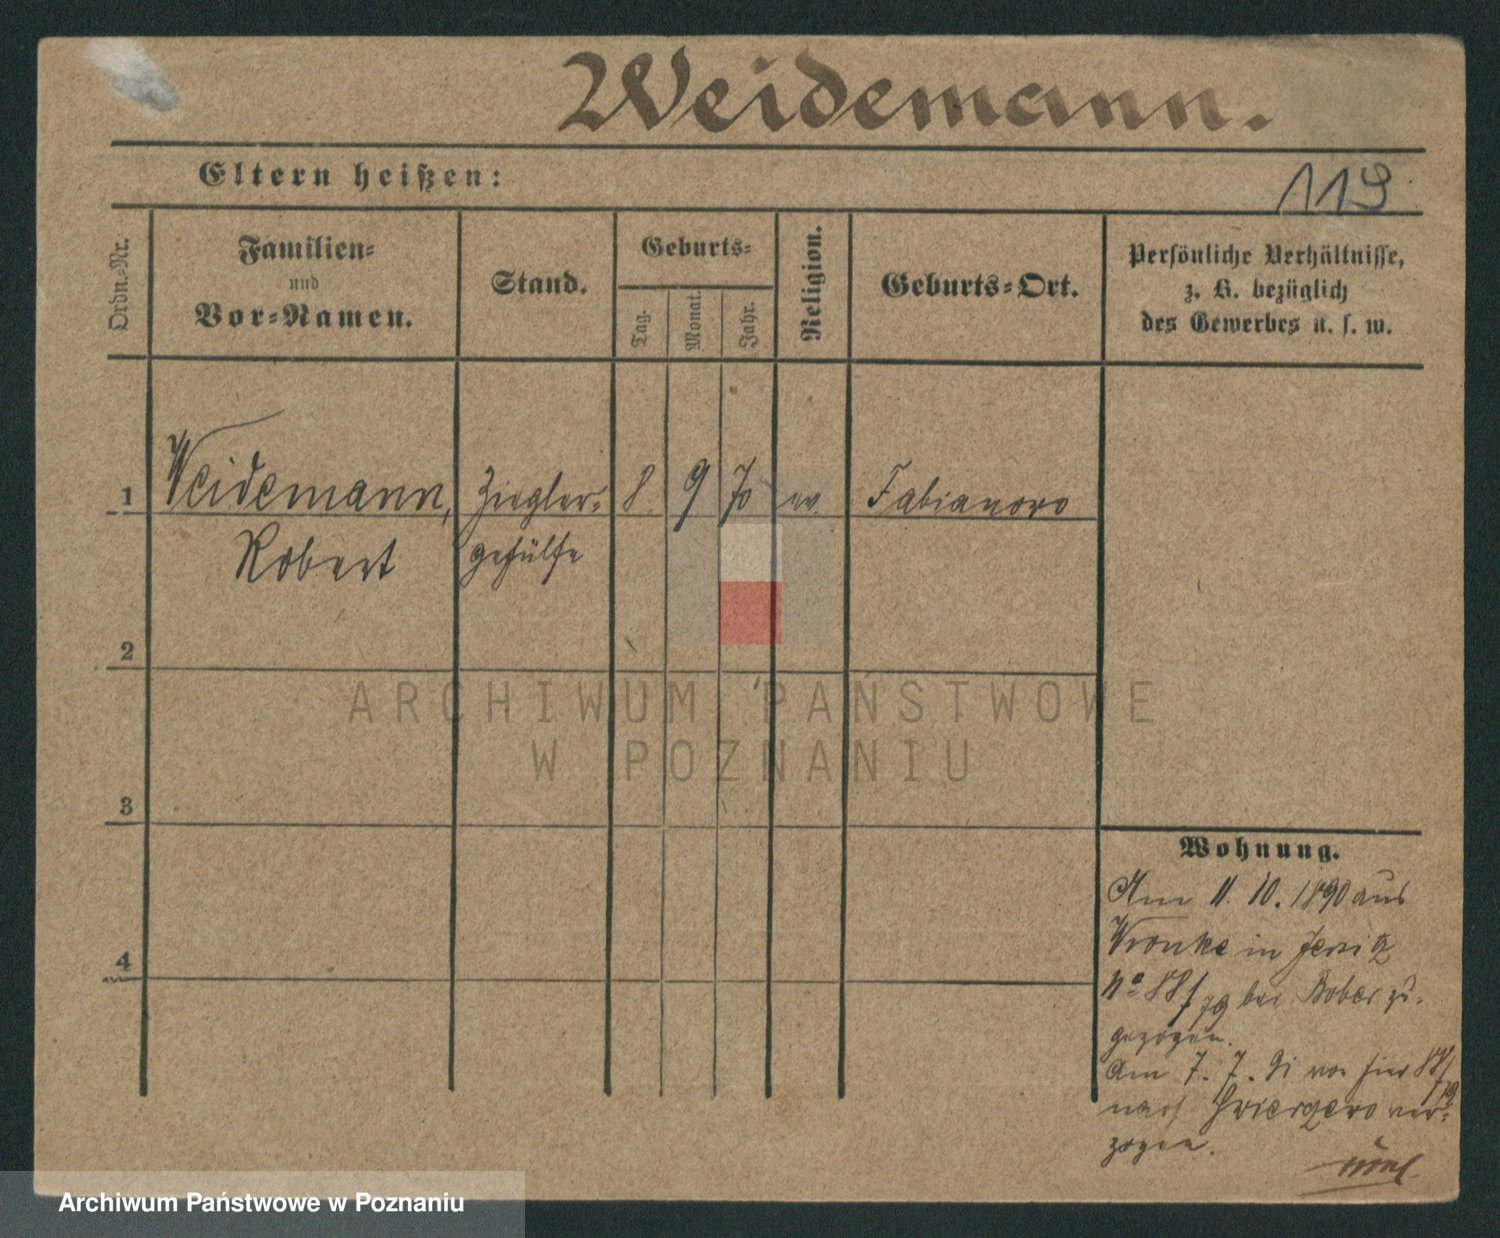 Weidemann.
Eltern heißen:
119
Ordn.-Nr.
Familien-
und
Vor-Namen.
Stand.
Geburts-
Tag.
Monat.
Jahr.
Religion.
Geburts-Ort.
Persönliche Verhältnisse,
z. B. bezüglich
des Gewerbes u. s. w.
1 Weidemann, Ziegler- 8 9 70 ev. Fabianowo
Robert gehülfe
2
3
4
Wohnung.
Am 11. 10. 1890 aus
Wronke in Jersitz
No 88/79 bei Bober zu-
gezogen.
Am 7. 7. 91 von hier 88/79
nach ver-
zogen.
ARCHIWUM PAŃSTWOWE
W POZNANIU
Archiwum Państwowe w Poznaniu